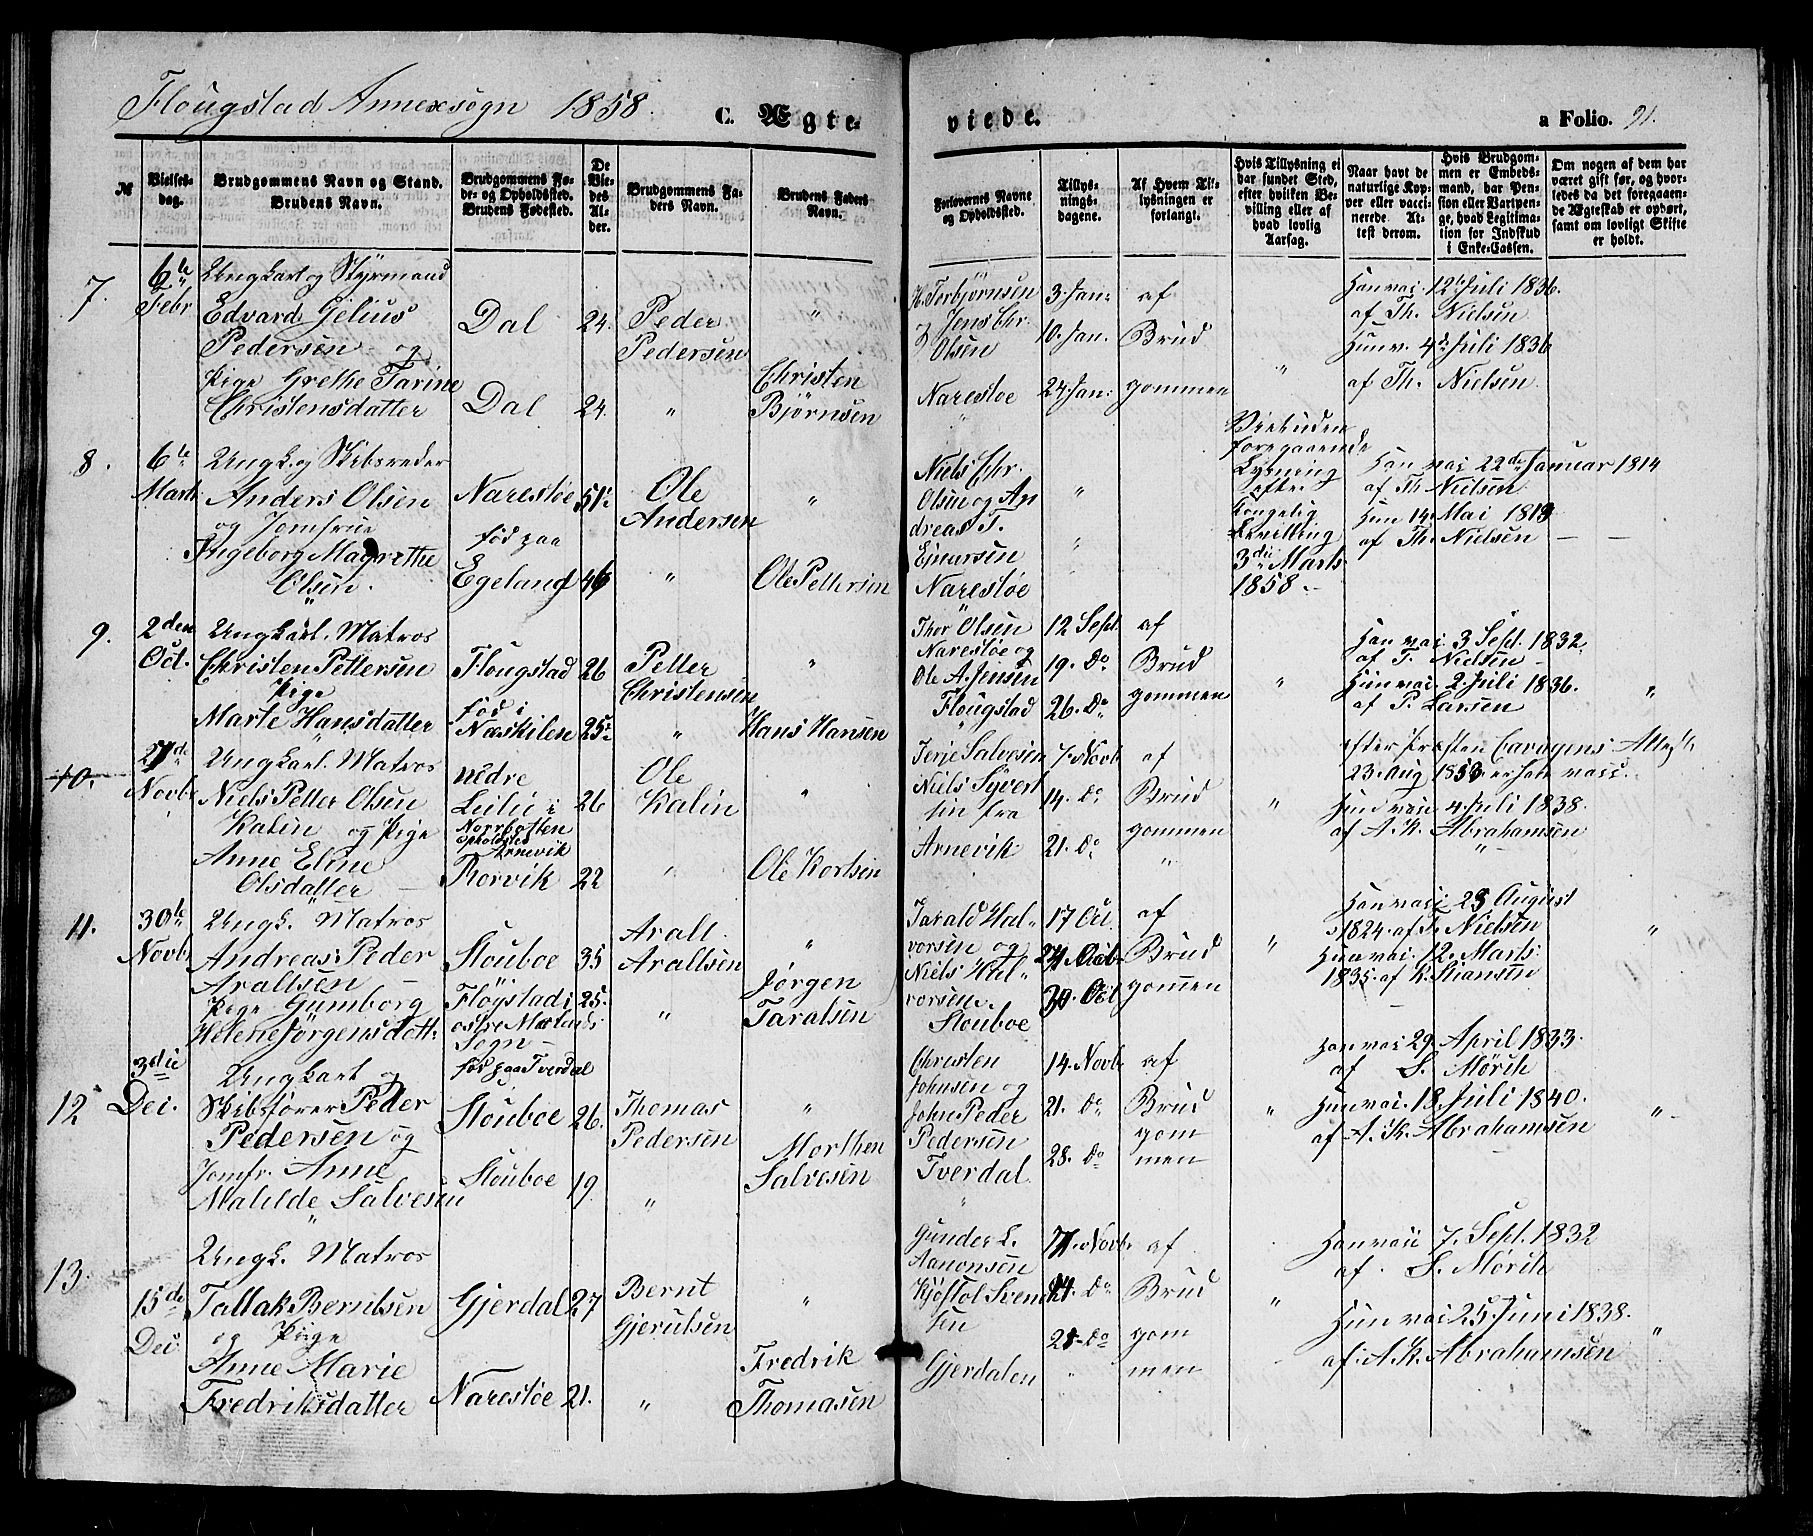 Flougstad Annexsogn 1858.
C. Ægte-
viede.
a Folio. 91.
№
Vielses-
dag.
Brudgommens Navn og Stand.
Brudens Navn.
Brudgommens Fø-
de- og Opholdssted.
Brudens Fødested.
De
Vie-
des
Al-
der.
Brudgommens Fa-
ders Navn.
Brudens Faders
Navn.
Forlovernes Navne
og Opholdssted.
Tillys-
nings-
dagene.
Af Hvem Til-
lysningen er
forlangt.
Hvis Tillysning ei
har fundet Sted,
efter hvilken Be-
villing eller af
hvad lovlig
Aarsag.
Naar havt de
naturlige Kop-
per eller vacci-
nerede. At-
test derom.
Hvis Brudgom-
men er Embeds-
mand, har Pen-
sion eller Vartpen-
ge, hvad Legitima-
tion for Indskud
i Enke-Cassen.
Om nogen af dem har
været gift før, og hvor-
ledes da det foregaaen-
de Ægteskab er ophørt,
samt om lovligt Skifte
er holdt.
7.
6te
Febr
Ungkarl og Styrmand
Edvard Gelius
Pedersen og
Pige Grethe Tarine
Christensdatter
Dal
Dal
24.
24.
Peder
Pedersen
"
"
Christen
Bjørnsen
K. Torbjørnsen
Jens Chr.
Olsen
Narestøe
3. Jan:
10. Jan.
24 Jan:
af
Brud
gommen
"
Han vac. 12 Juli 1836.
af Th. Nielsen
Hun v. 4de Juli 1836
af Th. Nielsen.
8.
6te
Marts
Ungk. og Skibsreder
Anders Olsen
og Jomfrue
Ingeborg Magrethe
Olsen.
Narestøe
fød paa
Egeland
51
46
Ole
Andersen
"
"
Ole Pettersen
Niels Chr.
Olsen og An
dreas T.
Einersen
Narestøe
"
"
foregaaende
Lysning
efter
Kongelig
Bevilling
3die Marts
1858.
Han vac 22de Januar 1814
af Th Nielsen
Hun 14 Mai 1813
af Th. Nielsen
9.
2den
Oct.
Ungkarl. Matros
Christen Pettersen
Pige
Marte Hansdatter
Flougstad
fød i
Næskilen
26
25
Petter
Christensen
"
"
Hans Hansen
Thor Olsen
Narestøe og
Ole A. Jensen
Flougstad
12 Sept.
19. Do
26. Do
af
Brud
gommen
"
Han vac 3 Sept. 1832.
af T. Nielsen
Hun vac. 2 Juli 1836.
af P. Larsen
"
10.
27de
Novbr
Ungkarl. Matros
Niels Petter Olsen
Kalin og Pige
Anne Eline
Olsdatter
nedre
Norrbotten
opholdsted
Arnevik
Rorvik
26
22
Ole
Kalin
"
"
Ole Kortsen
Terje Salvesen
Niels Syvert
sen fra
Arnevik
7. Novb
14. Do
21. Do
af
Brud
gommen
"
"
efter Præsten
23 Aug 1853 er han vacc.
Hun vac 4. Juli 1838.
af A. K. Abrahamsen
"
11.
30te
Novbr
Ungk. Matros
Andreas Peder
Araltsen
Pige Gumborg
Helene Jørgensdatt:
Stouboe
Fløystad i
østre Molands
Sogn
35
25.
Aralt
Araltsen
"
"
Jørgen
Taralsen
Tarald Hal-
vorsen og
Niels Hal-
vorsen.
Stouboe
17 Oct.
24. Octb
30. Oct
af
Brud
gommen
"
Han vac. 23 August
1824. af T. Nielsen
Hun vac. 12. Marts
1835. af K. Hansen
"
12
3die
Dec.
Ungkarl og
Skibsfører Peder
Pedersen og
Jomfr. Anne
Matilde Salvesen
"
fød paa Tverdal
Stouboe
Stouboe
26.
19.
Thomas
Pedersen
"
"
Morthen
Salvesen
Christen
Johnsen og
John Peder
Pedersen
Tverdal
"
14. Novb.
21. Do
28. Do
af
Brud
gom
men
"
Han vac 29. April 1833.
af S. Mørch
Hun vac. 18. Juli 1840.
af A. K. Abrahamsen
"
13.
15de
Dec.
Ungk. Matros
Tallak Berntsen
og Pige
Anne Marie
Fredriksdatter
Gjerdal
Narestøe
27
21.
Bernt
Gjerulsen
"
"
Fredrik
Thomasen
Gunder L.
Aanonsen
Kjøstol Svend
sen
Gjerdalen
7. Novb.
14. Do
21. Do
"
af
Brud
gom
men
"
Han vac 7. Sept. 1832
af S. Mørch
Hun vac 25 Juni 1838.
af A. K. Abrahamsen
"